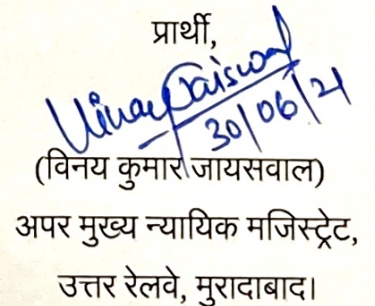 प्रार्थी,
Vinay Jaiswal
30/06/21
(विनय कुमार जायसवाल)
अपर मुख्य न्यायिक मजिस्ट्रेट,
उत्तर रेलवे, मुरादाबाद।